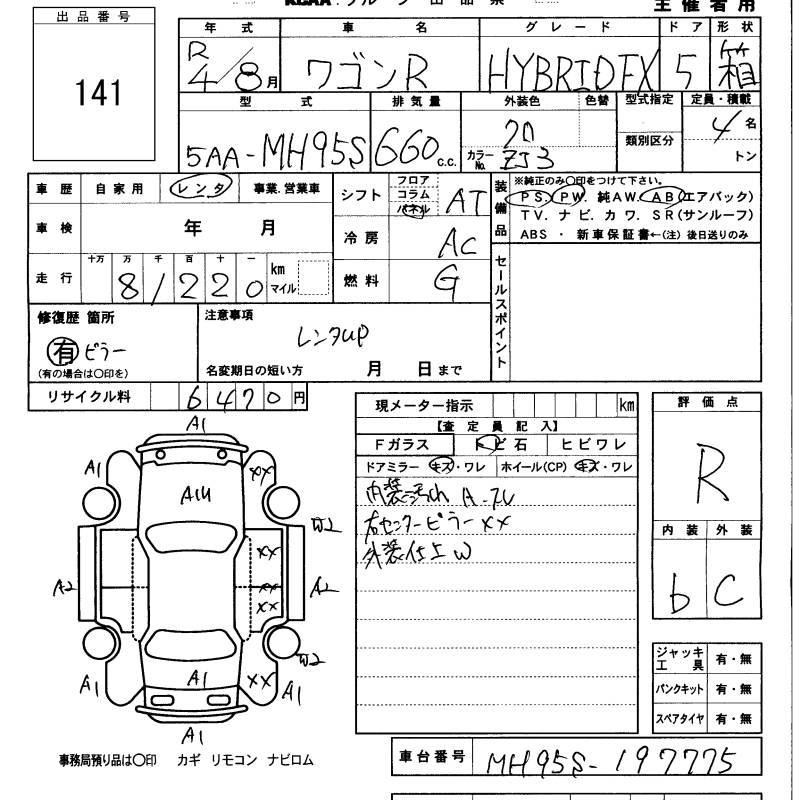 出品番号
141
主催者用
年式 車名 グレード ドア 形状
R4/8月 ワゴンR HYBRID FX 5 箱
型式 排気量 外装色 色替 型式指定 定員・積載
5AA-MH95S 660c.c. クロ カラーNo. ZJ3 類別区分 4名
トン
車歴 自家用 レンタ 事業.営業車
車検 年 月
走行 十万 万 千 百 十 一
81220 km マイル
シフト フロア コラム パネル AT
冷房 AC
燃料 G
装備品
※純正のみ○印をつけて下さい。
PS. PW. 純AW. AB(エアバック)
TV. ナビ. カワ. SR(サンルーフ)
ABS ・ 新車保証書←(注) 後日送りのみ
セールスポイント
修復歴 箇所
有 ピラー
(有の場合は○印を)
注意事項
レンタUP
名変期日の短い方 月 日まで
リサイクル料 6470円
現メーター指示 km
【査定員記入】
Fガラス トビ石 ヒビワレ
ドアミラー キズ・ワレ ホイール(CP) キズ・ワレ
内装汚れ
右センターピラーXX
外装仕上W
評価点
R
内装 外装
b C
ジャッキ工具 有・無
パンクキット 有・無
スペアタイヤ 有・無
A1
A1 XX
A14
W2
XX
A2 XX A2
XX
W2
A1 A1 XX A1
A1
事務局預り品は○印 カギ リモコン ナビロム
車台番号 MH95S-197775